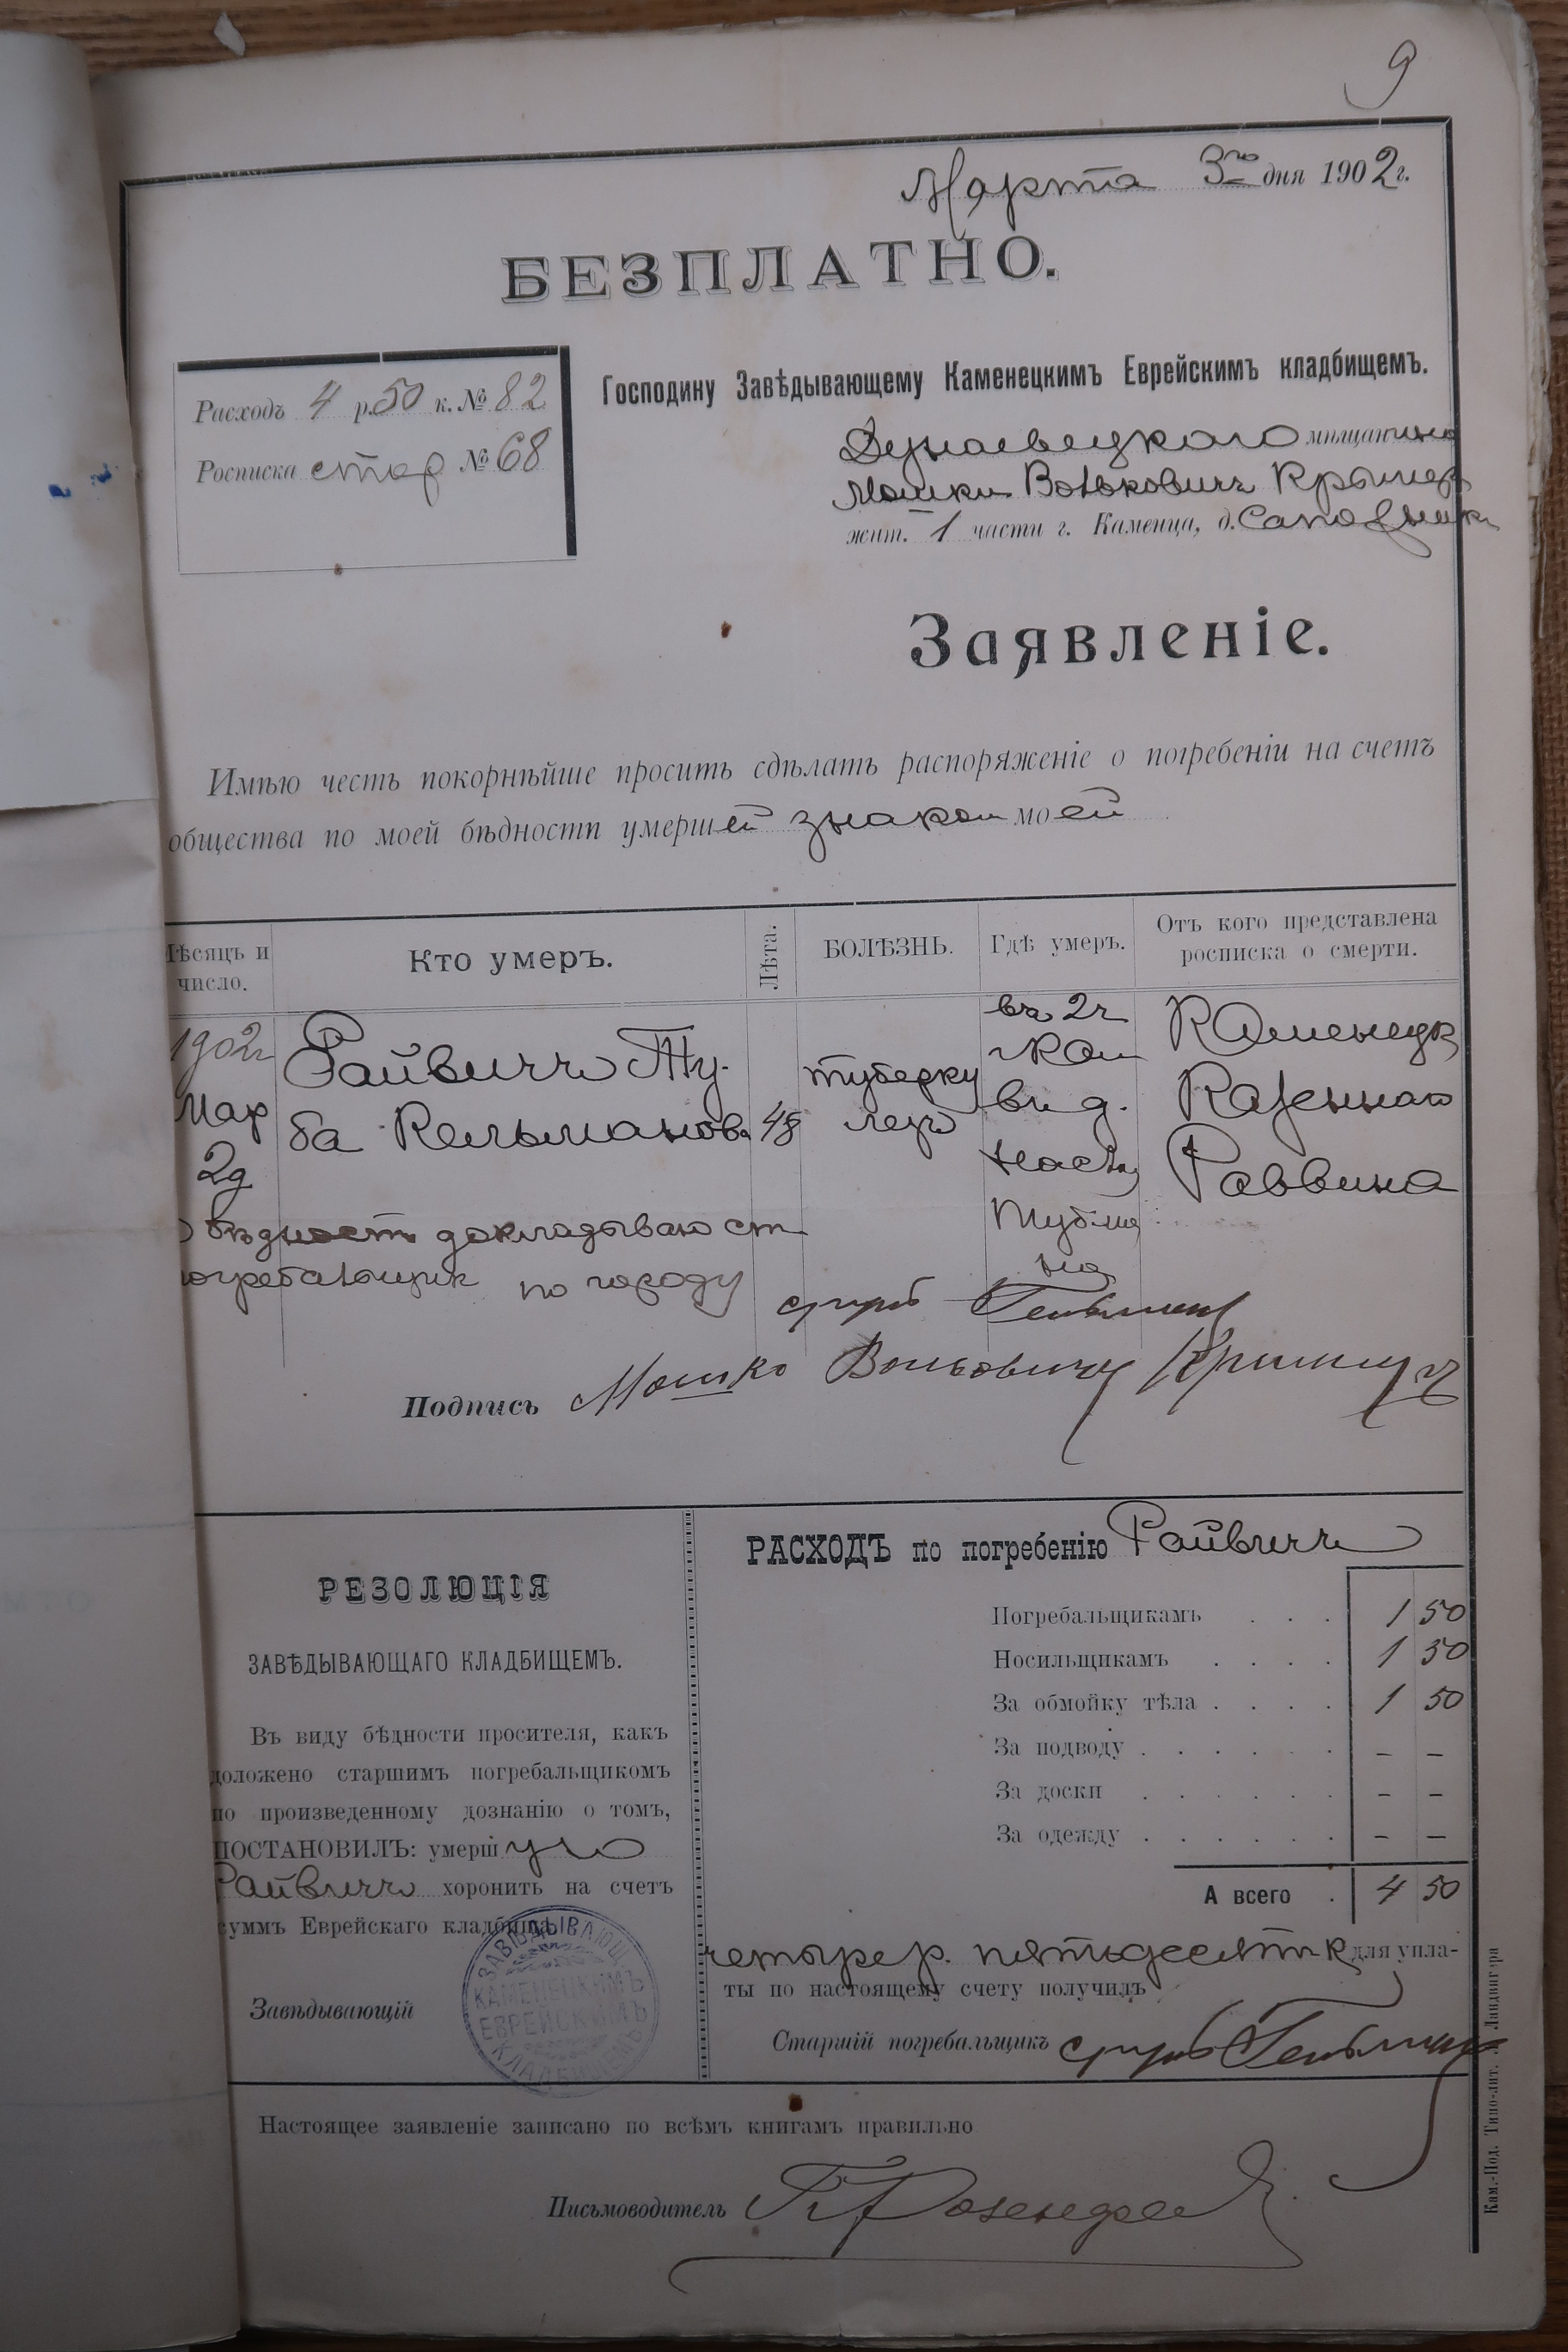 9
Марта 3го дня 1902 г.
БЕЗПЛАТНО.
Расходъ 4 р. 50 к. № 82
Росписка стар № 68
Господину Завѣдывающему Каменецкимъ Еврейскимъ кладбищемъ.
Дунаевецкого мѣщанина
Мошки Волькович Крымер
жит. 1 части г. Каменца, д.
Заявленіе.
Имѣю честь покорнѣйше просить сдѣлать распоряженіе о погребеніи на счетъ
общества по моей бѣдности умершей знаком моей
Мѣсяцъ и число.
Кто умеръ.
Лѣта.
БОЛѢЗНЬ.
Гдѣ умеръ.
Отъ кого представлена росписка о смерти.
1902г
Мар
2д
Райвичъ Ту-
ба Кельманова
туберку
лезъ
въ 2ч
г Кам
въ д.
Каменецк
Казеннаго
Раввина
бѣдность докладываю ст
погребальщик по городу
Подпись Мошко
РЕЗОЛЮЦІЯ
ЗАВѢДЫВАЮЩАГО КЛАДБИЩЕМЪ.
Въ виду бѣдности просителя, какъ
доложено старшимъ погребальщикомъ
по произведенному дознанію о томъ,
ПОСТАНОВИЛЪ: умершую
Райвичъ хоронить на счетъ
суммъ Еврейскаго кладбища.
Завѣдывающій
ЗАВѢДЫВАЮЩ. КАМЕНЕЦКИМЪ ЕВРЕЙСКИМЪ КЛАДБИЩЕМЪ
РАСХОДЪ по погребенію Райвичъ
Погребальщикамъ . . . 1 50
Носильщикамъ . . . . 1 50
За обмойку тѣла . . . . 1 50
За подводу . . . . . . – –
За доски . . . . . . – –
За одежду . . . . . . – –
А всего . 4 50
четыре р. пятьдесят к для упла-
ты по настоящему счету получилъ
Старшій погребальщикъ
Настоящее заявленіе записано по всѣмъ книгамъ правильно
Письмоводитель
Кам.-Под. Типо-лит. Ландвигера